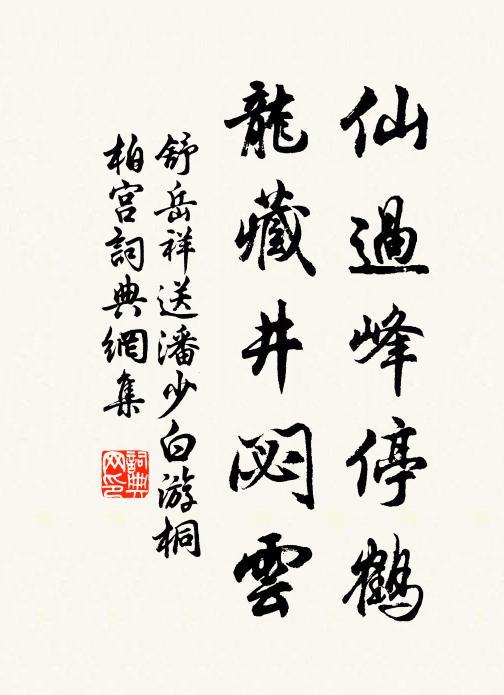 仙過峰停鶴
龍藏井閟雲
舒岳祥送潘少白游桐
柏宮詞典網集
詞典網印